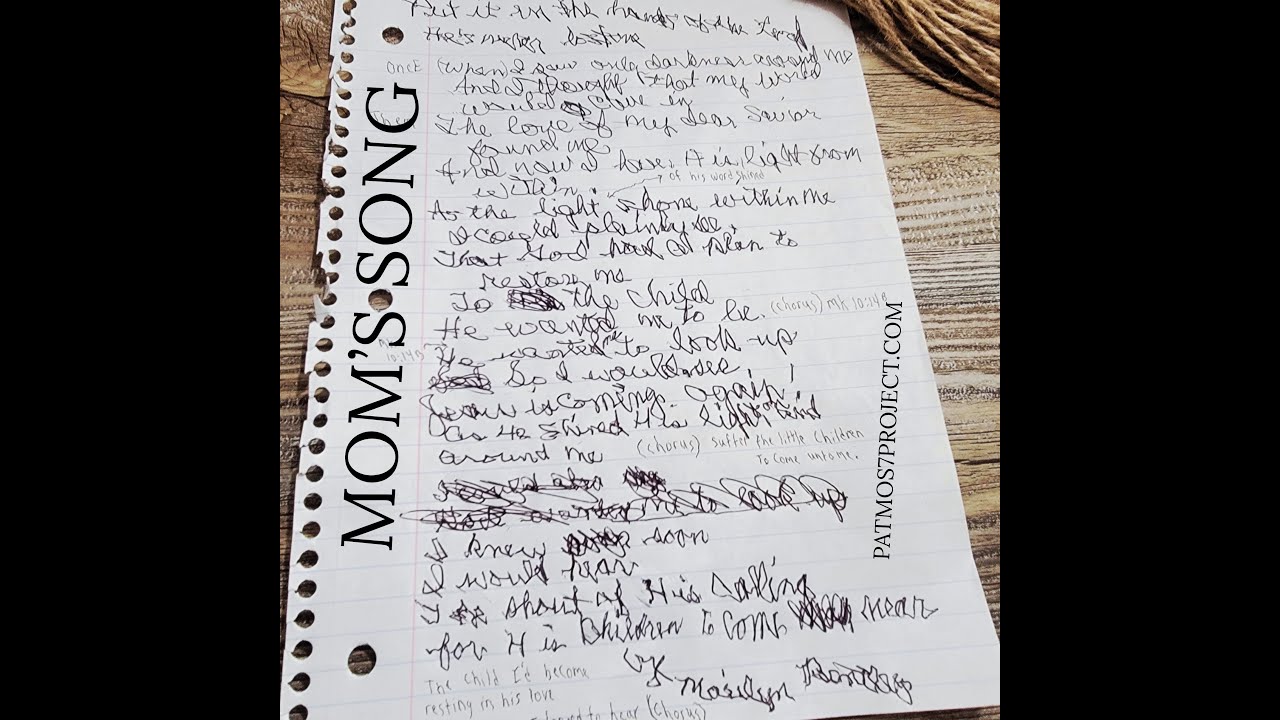 Put it in the hands of the Lord
He's never
Once (When) I saw only darkness around me
And I thought that my world
would cave in
Then
The love of my dear Savior
found me
And now I have His light from
within
of his word shined
As the light shone within me
I could plainly see
That God had a plan to
restore me
To the child
He wanted me to be. (chorus) MK 10:14B
MK 10:14B
He wanted me to look up
So I would see
Jesus is coming again!
As He shined His light
around me (chorus) suffer the little children
To come unto me.
look up
I knew soon
I would hear
shout of His calling
for His Children to come near
by
Marilyn
The child I'd become
resting in his love
to hear (chorus)
MOM'S SONG
PATMOS7PROJECT.COM